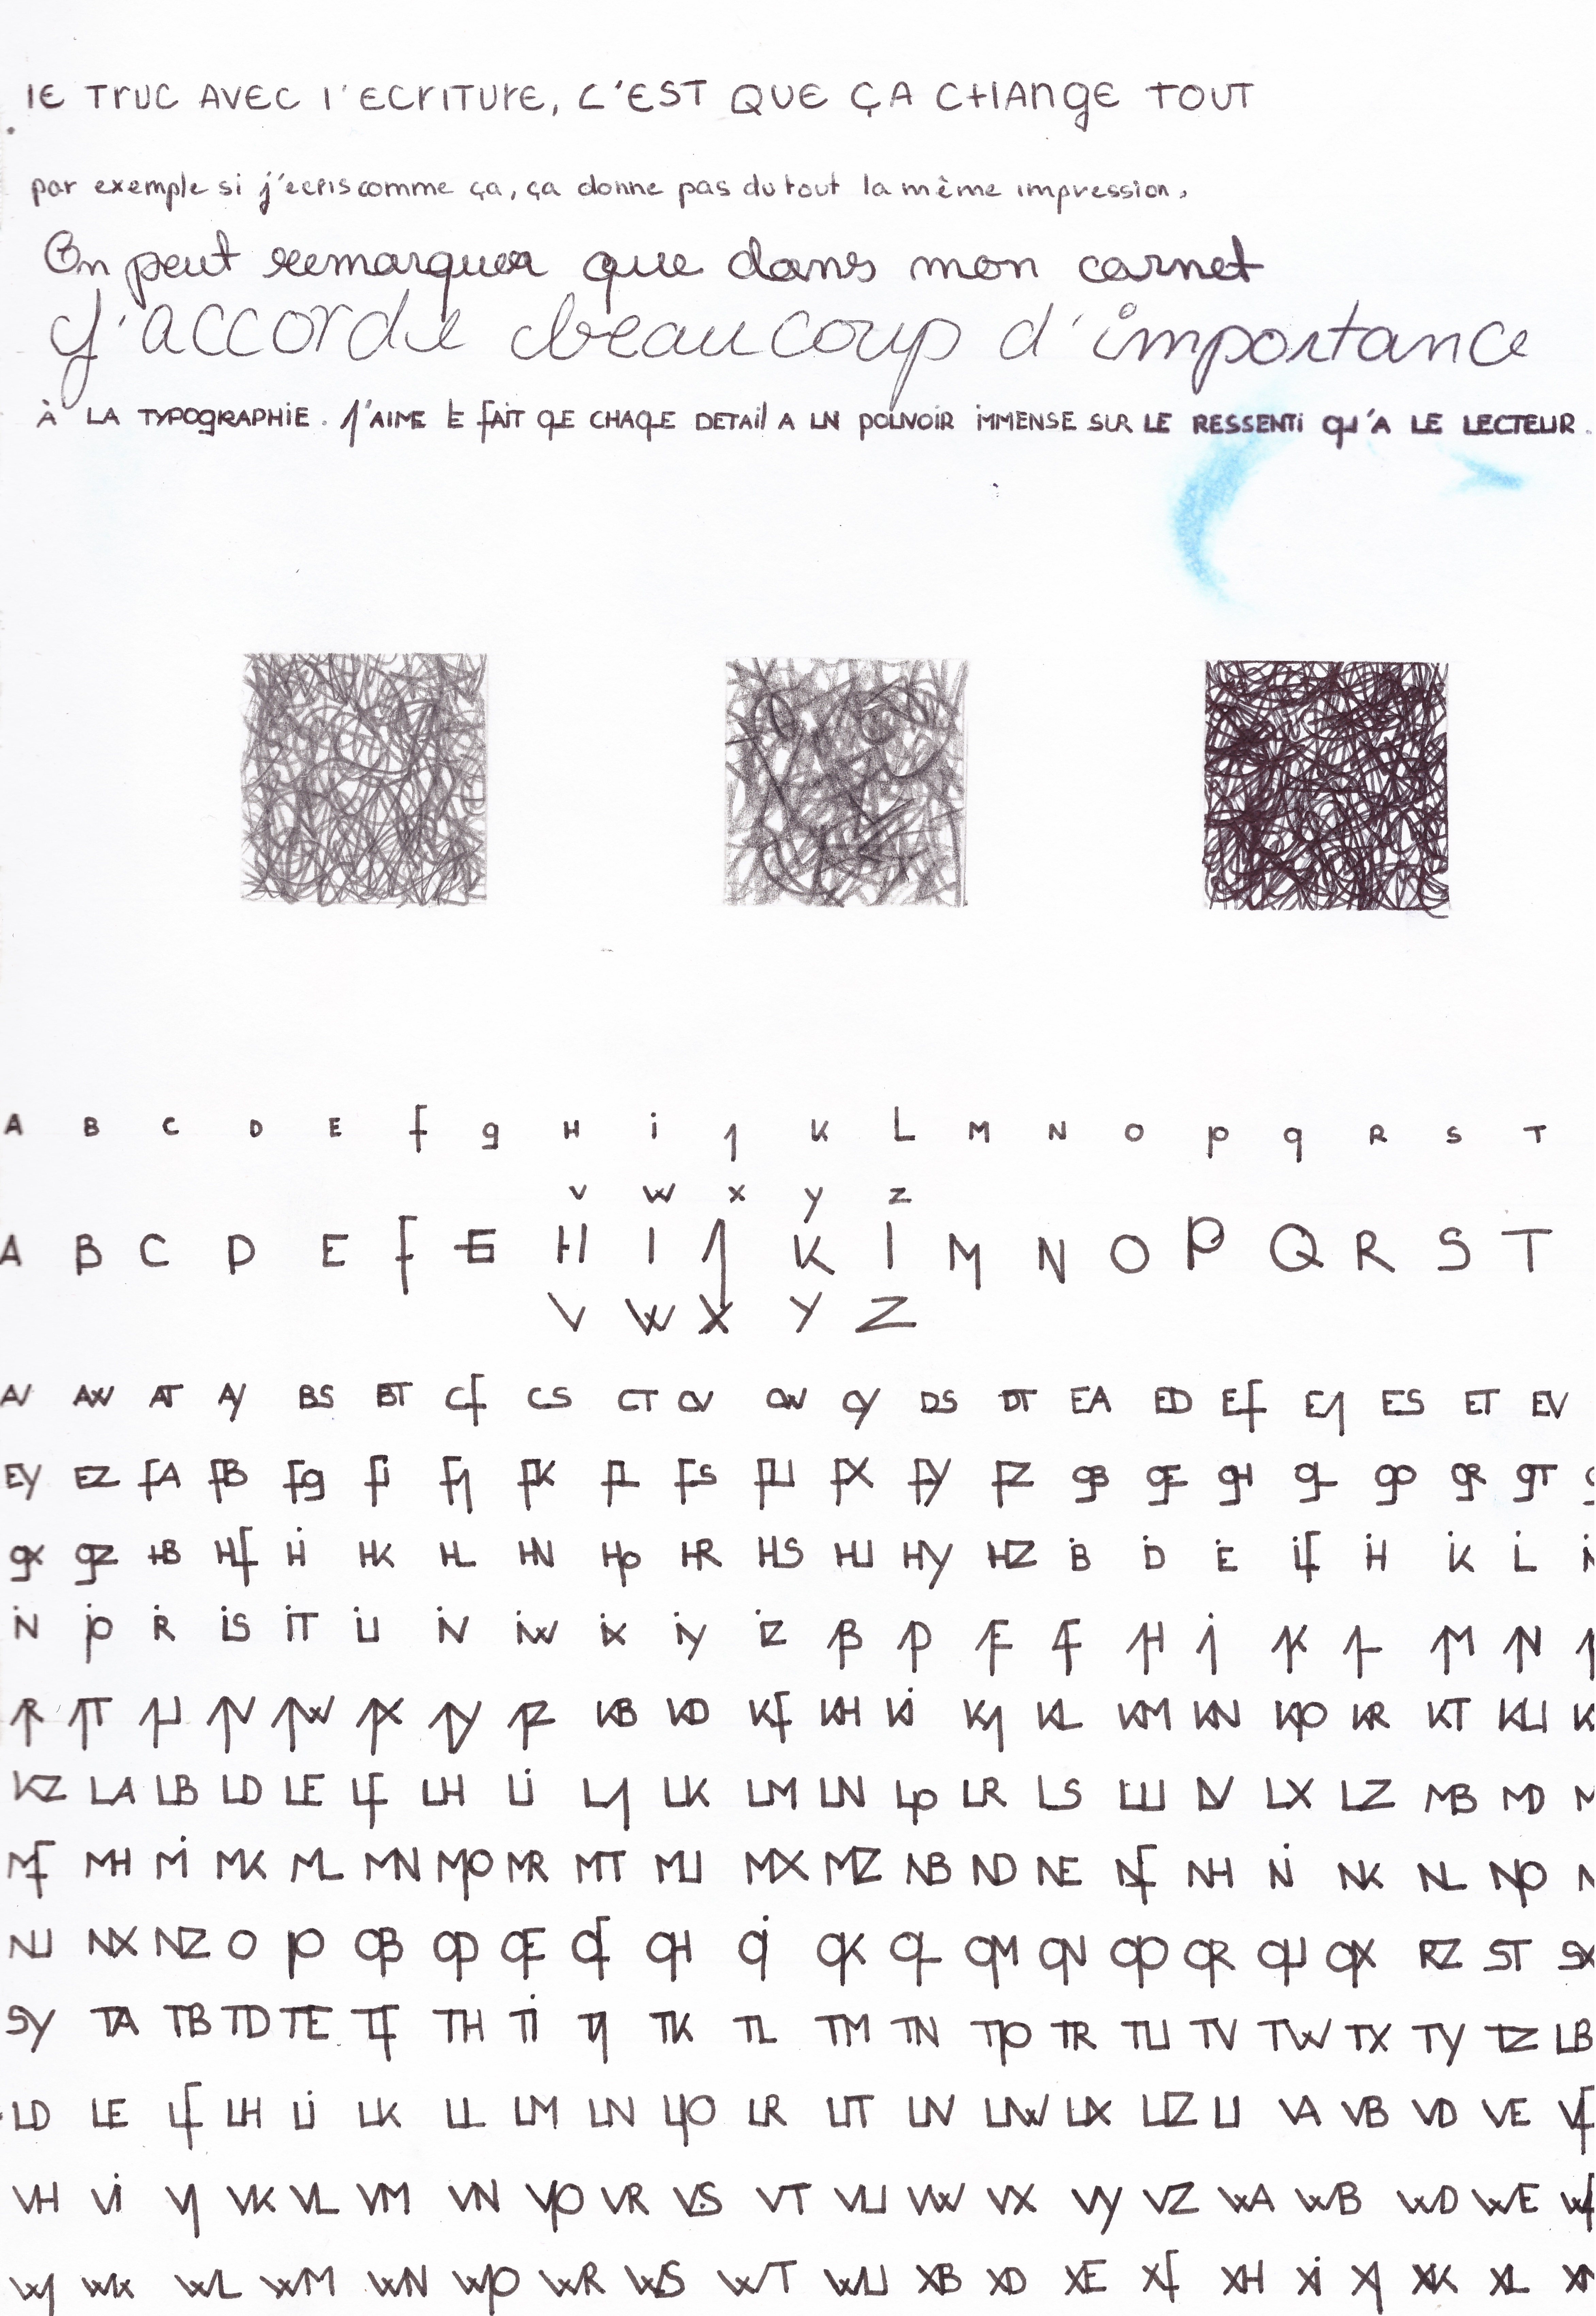 lE TrUC AVEC l'ECriTUrE, C'EST QUE ÇA CHAngE TOUT
par exemple si j'ecris comme ça, ça donne pas du tout la même impression,
On peut remarquer que dans mon carnet
j'accorde beaucoup d'importance
À LA TYPOgRAPHiE. J'AiME LE fAiT QUE CHAQUE DETAil A UN pOUVOiR iMMENSE SUR LE RESSENTi qU'A LE LECTEUR.
A B C D E f g H i J K L M N O p q R S T
V W X y Z
A B C D E f G H I J K l M N O P Q R S T
V W X Y Z
AV AW AT Ay BS BT Cf CS CT CV CW Cy DS DT EA ED Ef EJ ES ET EV
EY EZ fA fB fg fi fJ fK fL fS fU fX fy fZ gB gE gH gL gO gR gT
gX gZ HB Hf Hi HK HL HN Hp HR HS HU Hy HZ iB iD iE if iH iK iL
iN ip iR iS iT iU iV iW iX iy iZ JB JD JE Jf JH Ji JK JL JM JN
JR JT JU JV JW JX Jy JZ KB KD Kf KH Ki KJ KL KM KN Kp KR KT KU
KZ LA LB LD LE Lf LH Li LJ LK LM LN Lp LR LS LU LV LX LZ MB MD
Mf MH Mi MK ML MN Mp MR MT MU MX MZ NB ND NE Nf NH Ni NK NL Np
NU NX NZ O pO qB qD qE qf qH qi qK qL qM qN qp qR qU qX RZ ST SX
SY TA TB TD TE Tf TH Ti TJ TK TL TM TN Tp TR TU TV TW TX TY TZ UB
UD UE Uf UH Ui UK UL UM UN Up UR UT UV UW UX UZ U VA VB VD VE Vf
VH Vi VJ VK VL VM VN Vp VR VS VT VU VW VX Vy VZ WA WB WD WE Wf
WJ WK WL WM WN Wp WR WS WT WU XB XD XE Xf XH Xi XJ XK XL XM